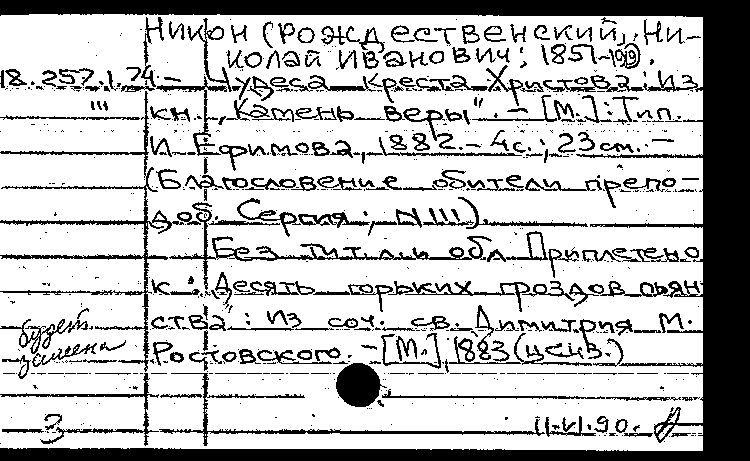 Никон (Рождественский, Ни-
колай Иванович; 1851-1919).
18.257.1.74 – Чудеса Креста Христова: Из
''' кн. „Камень веры". – [М.]: Тип.
И Ефимова, 1882. – 4с.; 23см. –
(Благословение обители препо-
доб. Сергия; N 111).
Без тит.л. и обл Приплетено
к: „Десять горьких гроздов пьян
ства": Из соч. св. Димитрия М.
Ростовского. – [М.], 1883 (ценз.)
будет
замена
3 11.VI.90.